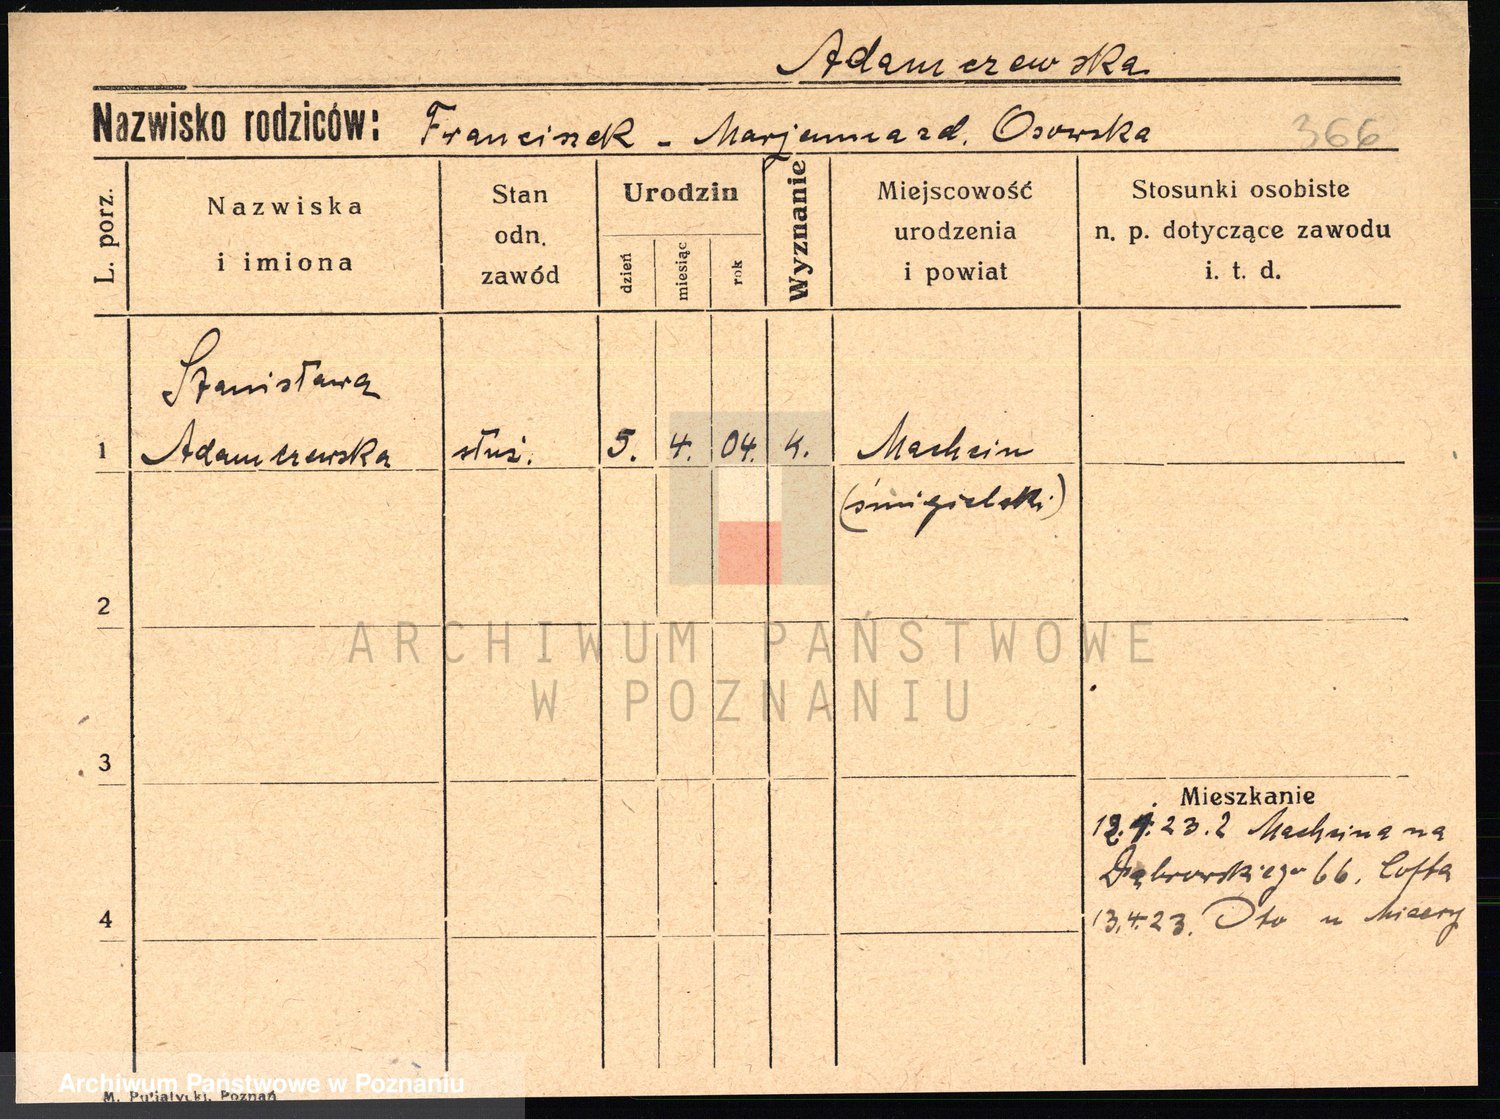 Adamczewska
Nazwisko rodziców: Franciszek - Marjanna zd. Osowska 366
L. porz.
Nazwiska
i imiona
Stan
odn.
zawód
Urodzin
dzień
miesiąc
rok
Wyznanie
Miejscowość
urodzenia
i powiat
Stosunki osobiste
n. p. dotyczące zawodu
i. t. d.
Stanisława
1 Adamczewska służ. 5. 4. 04. k. Machcin
(śmigielski)
2
ARCHIWUM PAŃSTWOWE
W POZNANIU
3
Mieszkanie
4.23. z Machcina na
Dąbrowskiego 66.
4
13.4.23. Dto u
Archiwum Państwowe w Poznaniu
M. Pujatycki, Poznań